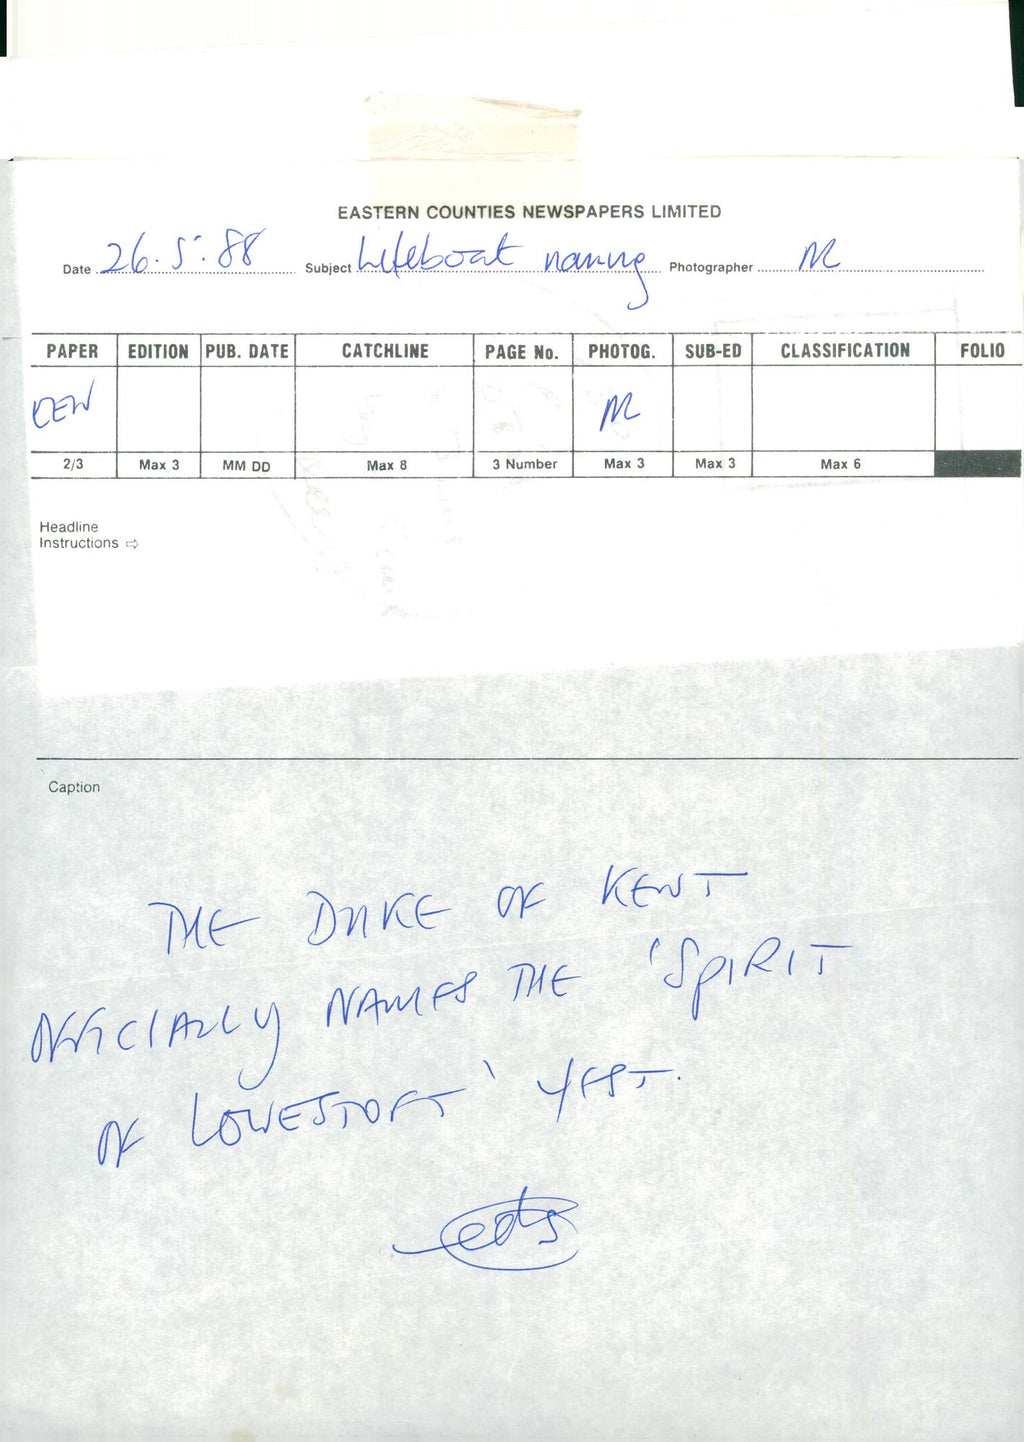 EASTERN COUNTIES NEWSPAPERS LIMITED
Date 26.5.88 Subject Lifeboat naming Photographer
PAPER EDITION PUB. DATE CATCHLINE PAGE No. PHOTOG. SUB-ED CLASSIFICATION FOLIO
2/3 Max 3 MM DD Max 8 3 Number Max 3 Max 3 Max 6
Headline
Instructions ⇨
Caption
THE DUKE OF KENT
OFFICIALLY NAMES THE 'SPIRIT
OF LOWESTOFT' YEST.
eds